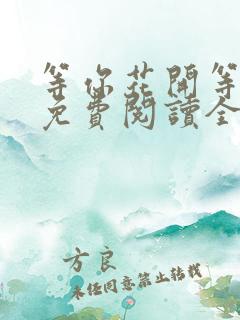 等你花開等
免費閱讀全
方良
未經同意禁止轉載